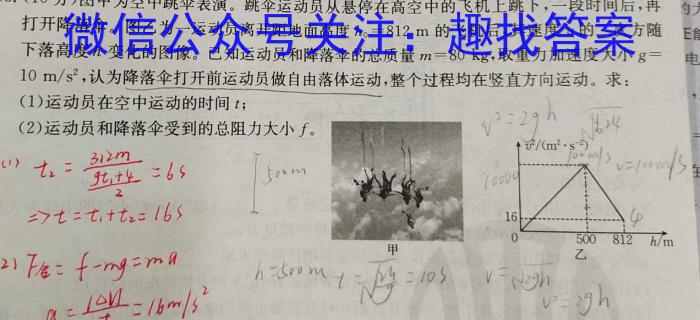 (10分)图甲为空中跳伞表演。跳伞运动员从悬停在高空中的飞机上跳下,一段时间后,再
打开降落伞
812 m 的
微信公众号关注：趣找答案
下落高度h变化的图像。已知运动员和降落伞的总质量 m=80 kg,取重力加速度大小g=
10 m/s²,认为降落伞打开前运动员做自由落体运动,整个过程均在竖直方向运动。求:
(1)运动员在空中运动的时间 t;
(2)运动员和降落伞受到的总阻力大小 f。
v²=2gh
(1) t₂ = 312m / (gt₁+4)/2 = 6s
500m
v²/(m²·s⁻²)
100m/s
v=100m/s
10000
16
4
0 500 812 h/m
甲
乙
⇒t=t₁+t₂=16s
2) F合= f-mg=ma
h=500m t= =10s
v=√2gh
v²=2gh
a= |Δv|/t =16m/s²